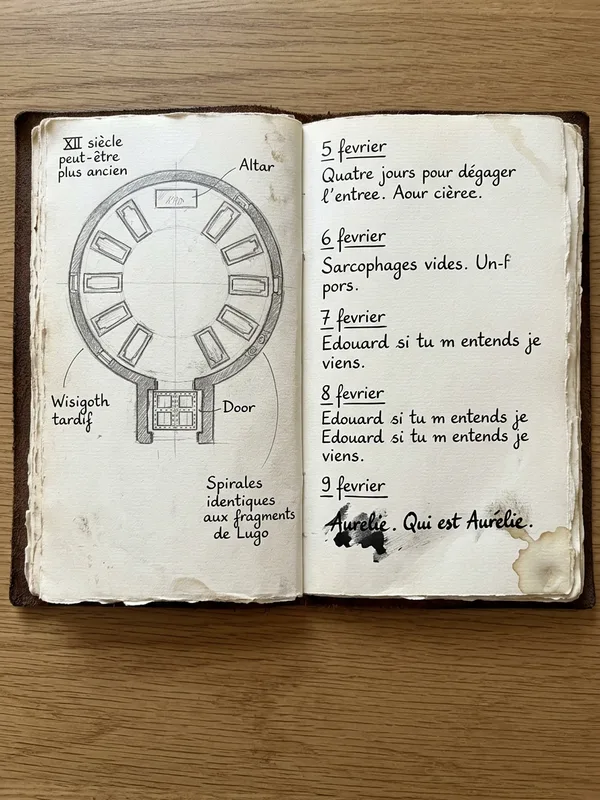 XII siècle
peut-être
plus ancien
Altar
Wisigoth
tardif
Door
Spirales
identiques
aux fragments
de Lugo
5 fevrier
Quatre jours pour dégager
l'entree. Aour cièree.
6 fevrier
Sarcophages vides. Un-f
pors.
7 fevrier
Edouard si tu m entends je
viens.
8 fevrier
Edouard si tu m entends je
Edouard si tu m entends je
viens.
9 fevrier
Aurélie. Qui est Aurélie.